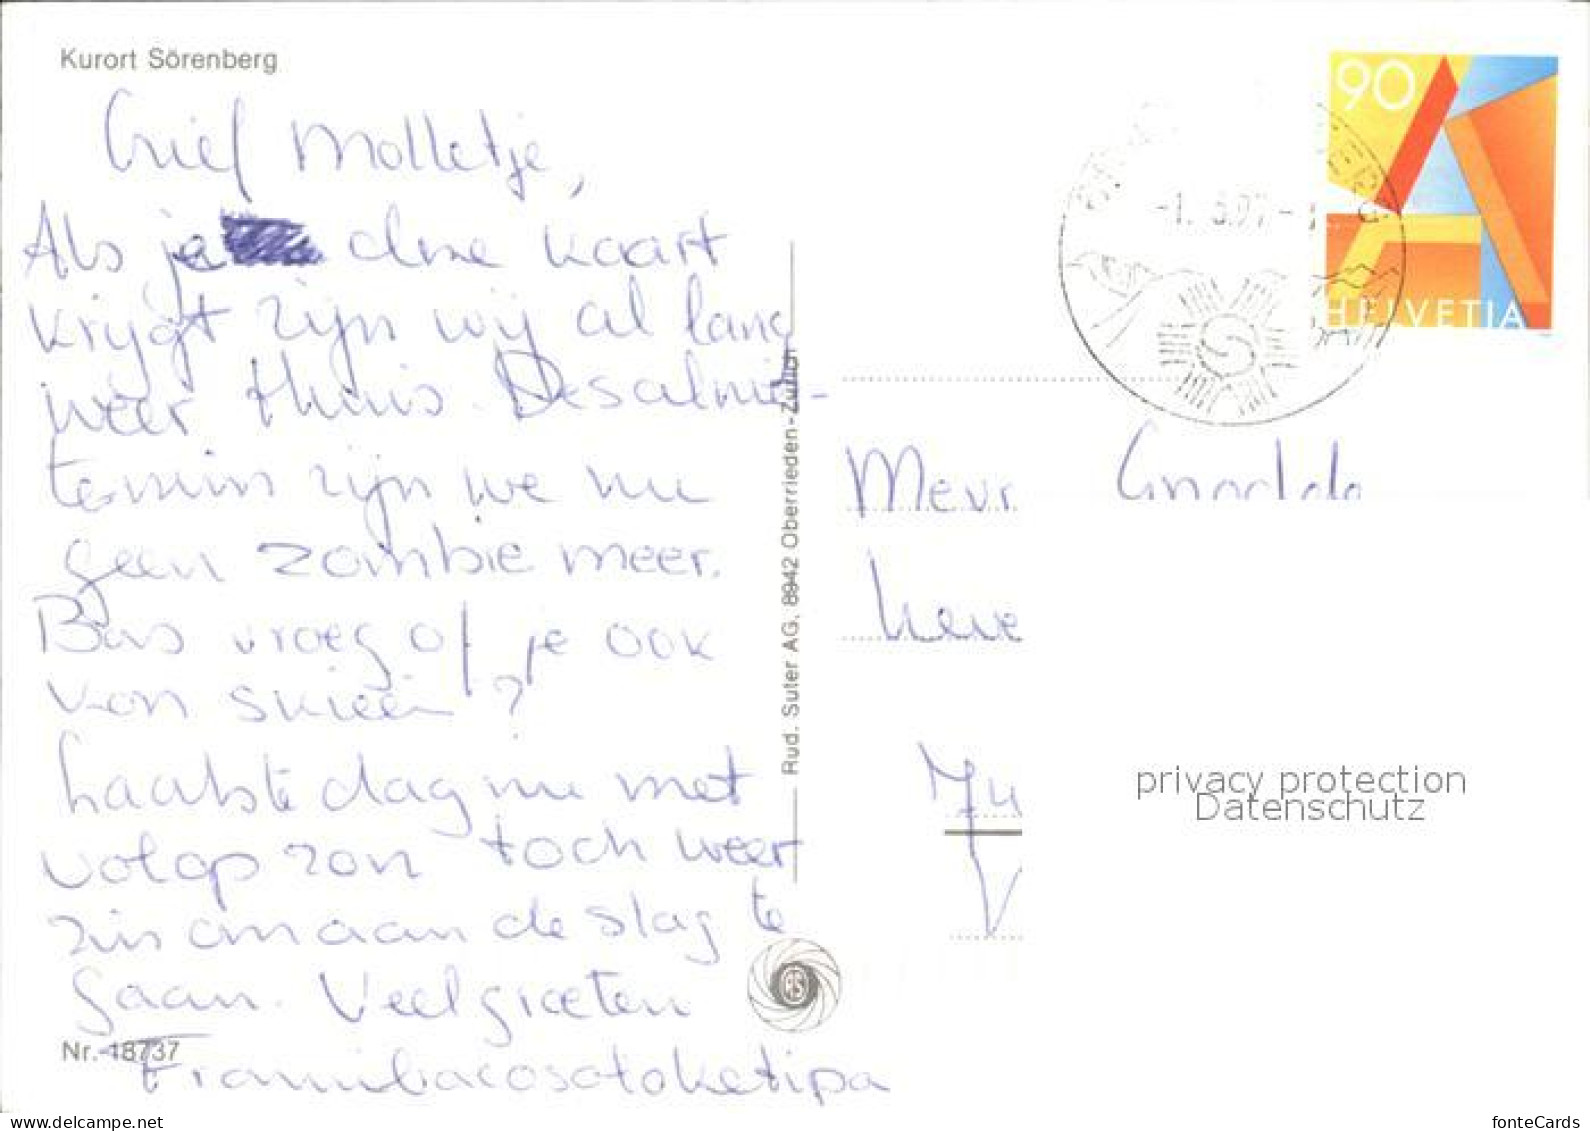 Kurort Sörenberg
90
HELVETIA
-1. 3.97-
Lief Molletje,
Als je deze kaart
krijgt zijn wij al lang
weer thuis. Desalnie-
temin zijn we nu
geen zombie meer.
Bas vroeg of je ook
kon skieën?
Laatste dag nu met
volop zon toch weer
zin om aan de slag te
gaan. Veel groeten
Mevr
Rud. Suter AG, 8942 Oberrieden-Zürich
RS
Nr. 18737
privacy protection
Datenschutz
www.delcampe.net
fonteCards